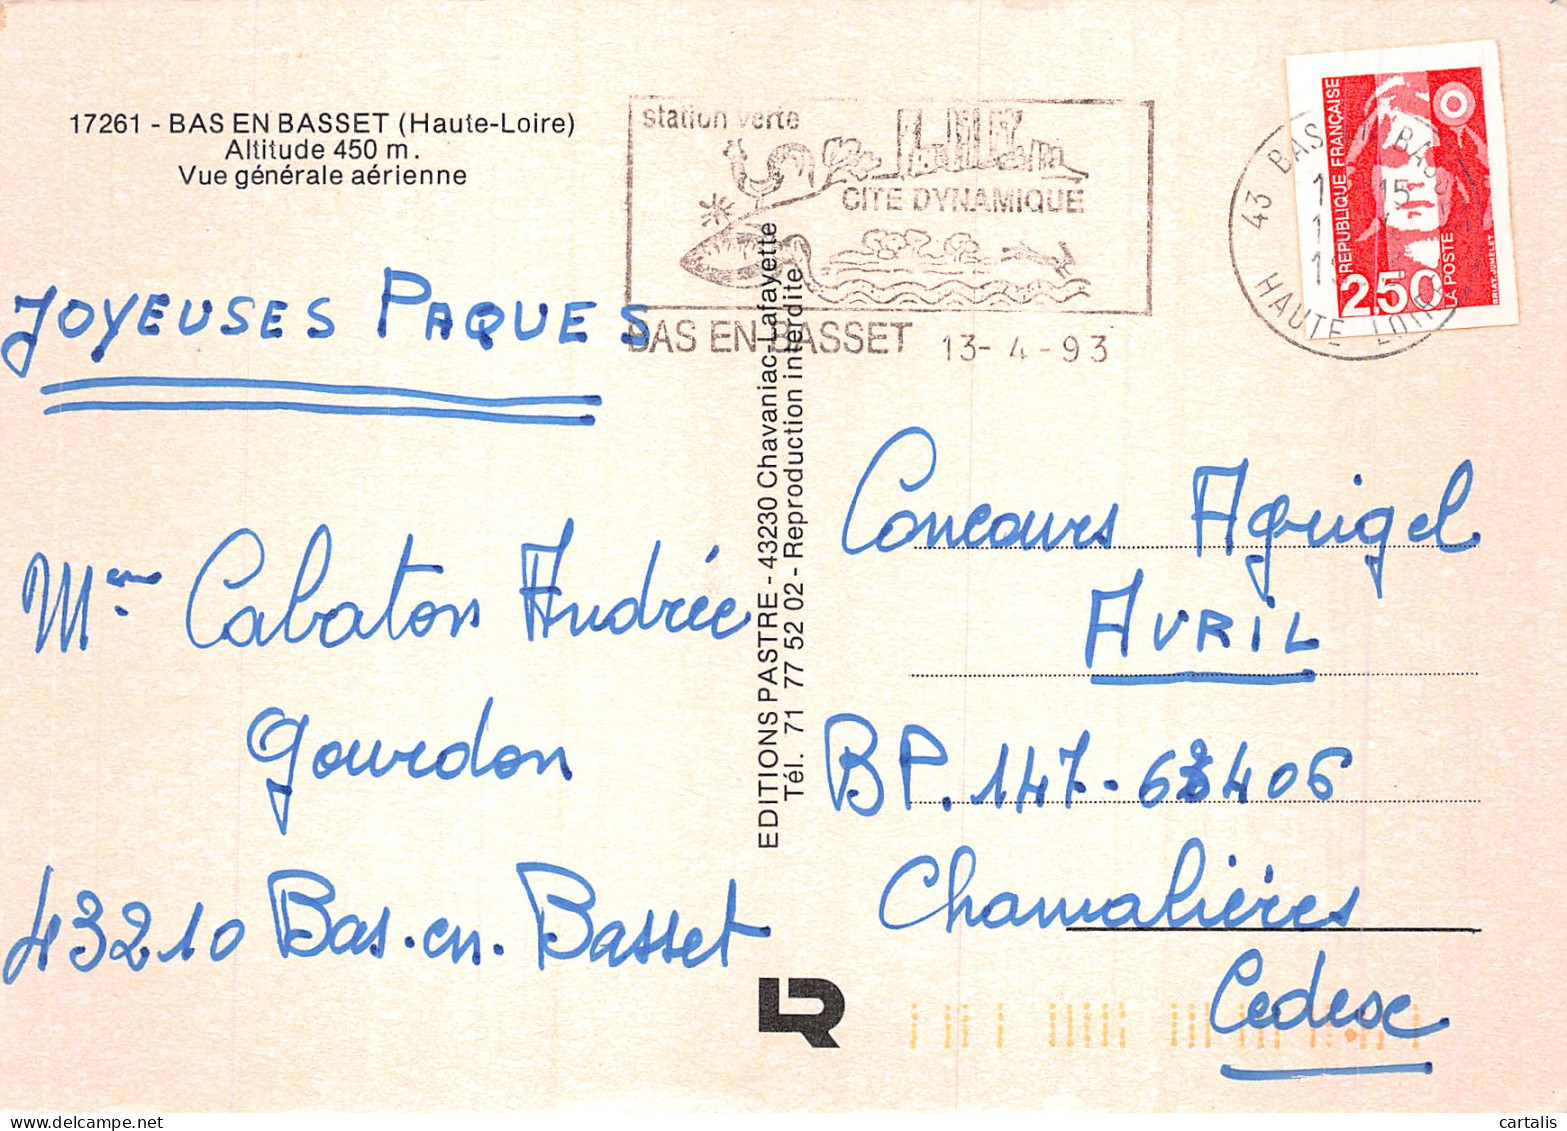 17261 - BAS EN BASSET (Haute-Loire)
Altitude 450 m.
Vue générale aérienne
station verte
CITE DYNAMIQUE
BAS EN BASSET 13- 4 - 93
43 BAS EN BASSET
HAUTE LOIRE
RÉPUBLIQUE FRANÇAISE
2,50
LA POSTE
BRIAT-JUMELET
JOYEUSES PAQUES
Mme Cabaton Andrée
Gourdon
43210 Bas-en-Basset
EDITIONS PASTRE - 43230 Chavaniac-Lafayette
Tél. 71 77 52 02 - Reproduction interdite
Concours Agrigel
AVRIL
BP. 147-63406
Chamalières
Cedex
LR
cartalis